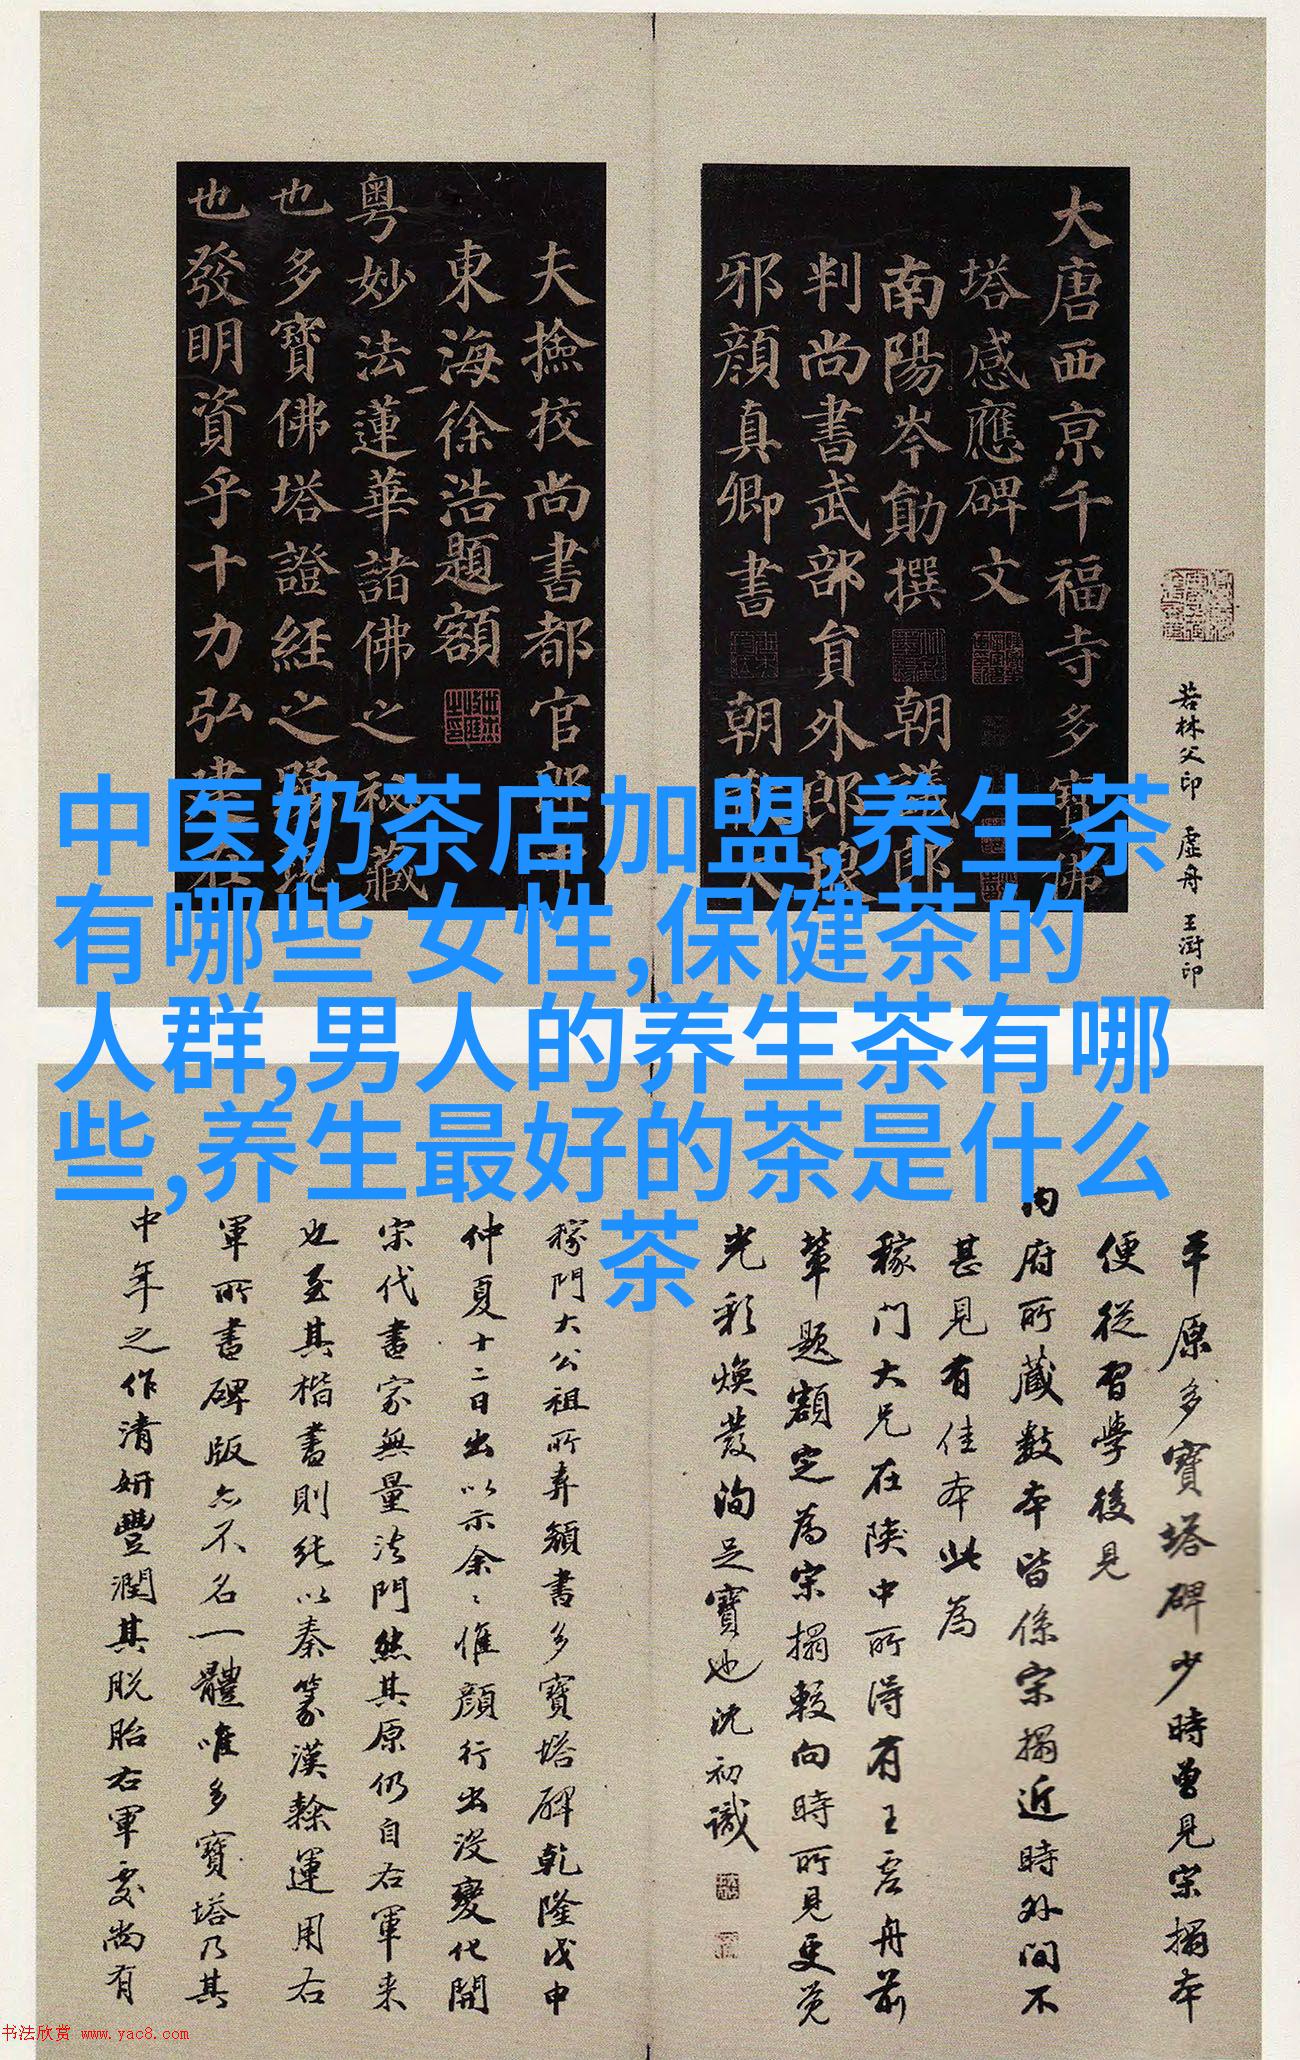 大唐西京千福寺多寶佛
塔感應碑文
南陽岑勛撰
朝議郎
判尚書武部員外郎琅
邪顏真卿書
朝
夫撿挍尚書都官郎中
東海徐浩題額
粤妙法蓮華諸佛之秘藏
也多寶佛塔證經之踴現
也發明資乎十力弘建在
若林父印 虛舟 王澍印
中医奶茶店加盟,养生茶
有哪些 女性,保健茶的
人群,男人的养生茶有哪
些,养生最好的茶是什么
茶
平原多寶塔碑少時曾見宋搨本
便從習學後見
内府所藏數本皆係宋搨近時外間不
甚見有佳本此為
稼门大兄在陕中所得有王虛舟前
輩題額定為宋搨較向時所見更覺
光彩煥發洵足寶也沈初識
稼門大公祖所弆顏書多寶塔碑乾隆戊申
仲夏十二日出以示余惟顏行出没變化開
宋代書家無量法門然其原仍自右軍来
也至其楷書則純以秦篆漢隸運用右
軍所書碑版亦不名一體唯多寶塔乃其
中年之作清妍豐潤其脱胎右軍處尚有
书法欣赏 www.yac8.com